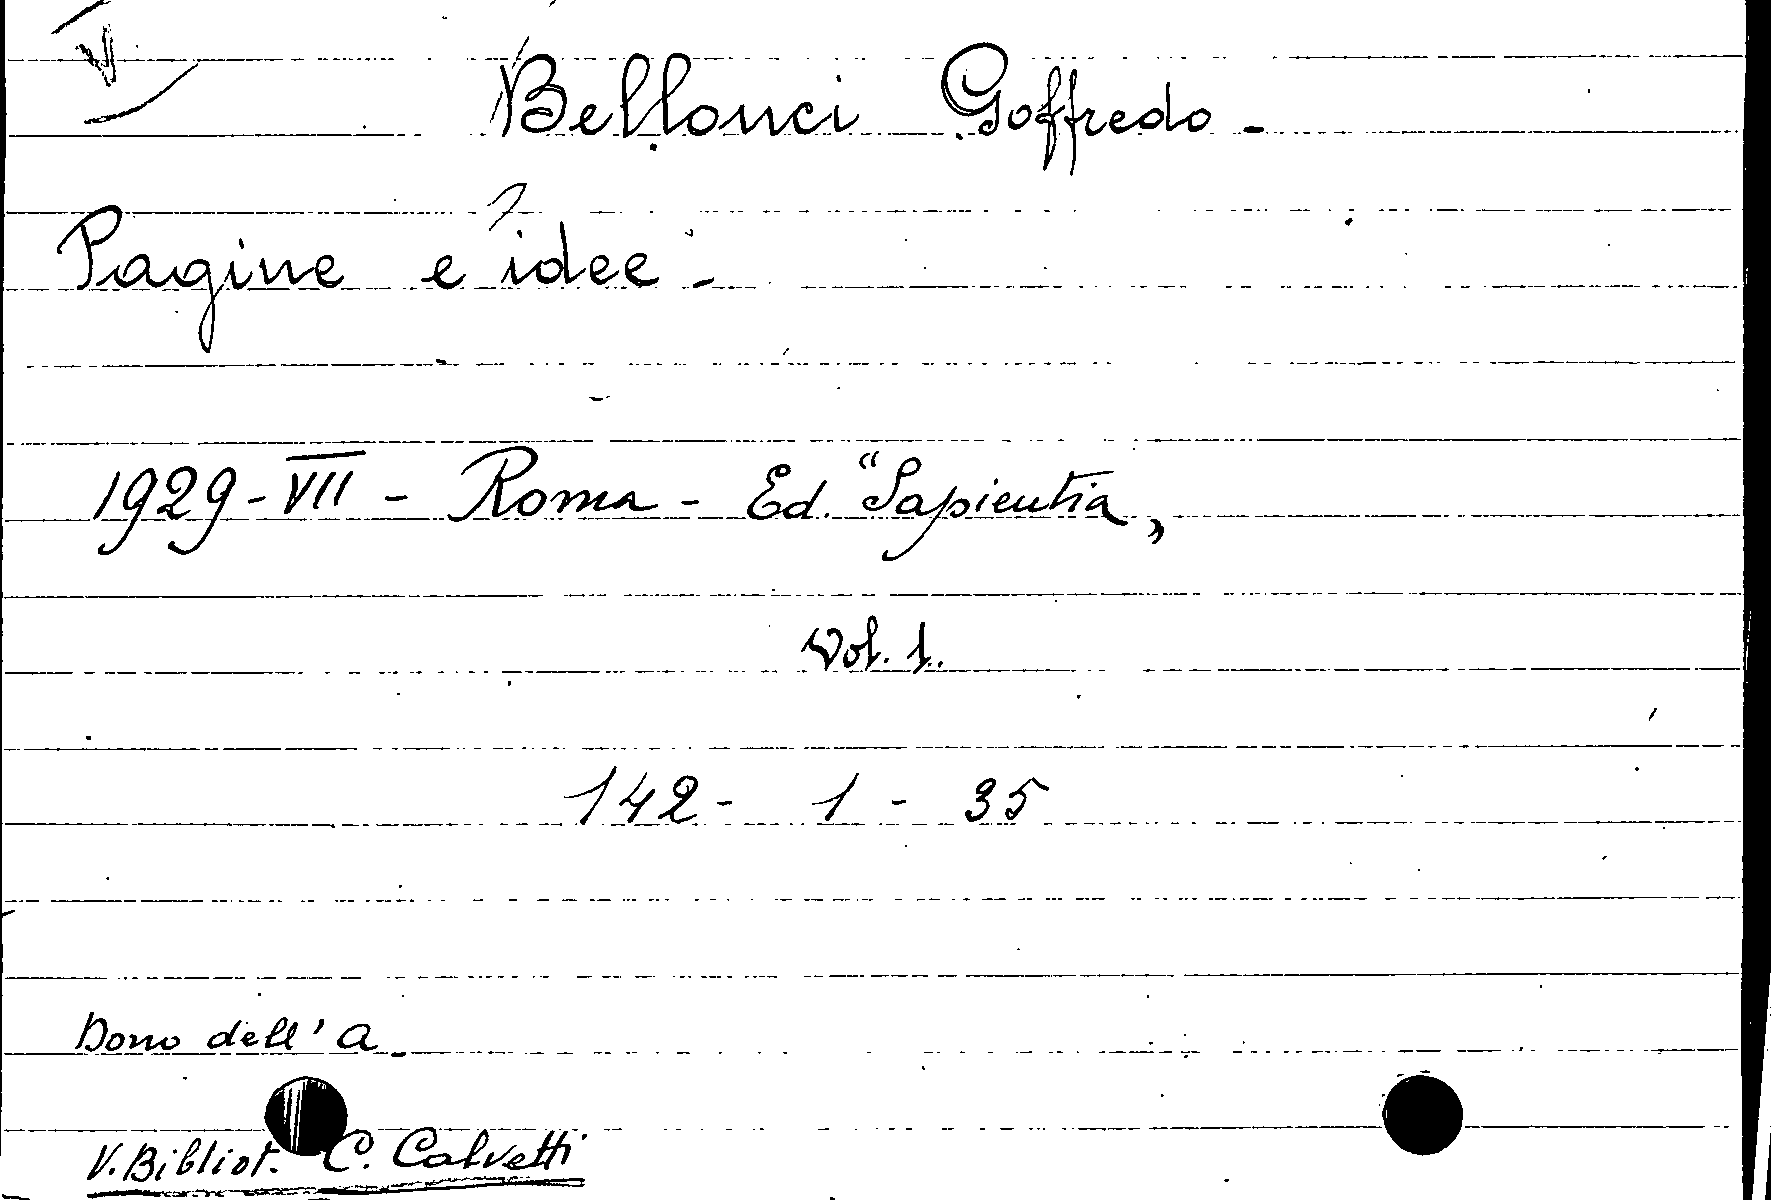 V
Bellonci Goffredo -
Pagine e idee -
1929-VII - Roma - Ed. "Sapientia„
Vol. 1.
142 - 1 - 35
Dono dell'A.
V. Bibliot. C. Calvetti